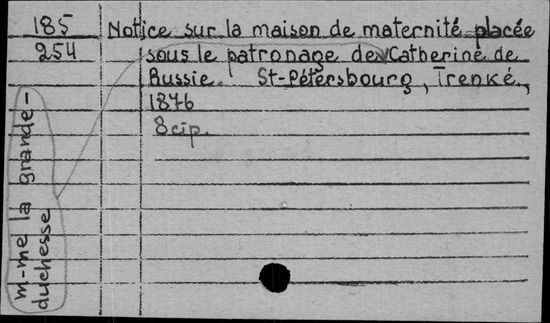 185 Notice sur la maison de maternité placée
254 sous le patronage de Catherine de
Russie. St-Pétersbourg, Trenké,
1876
8 cтр.
m-me la grande-
duchesse